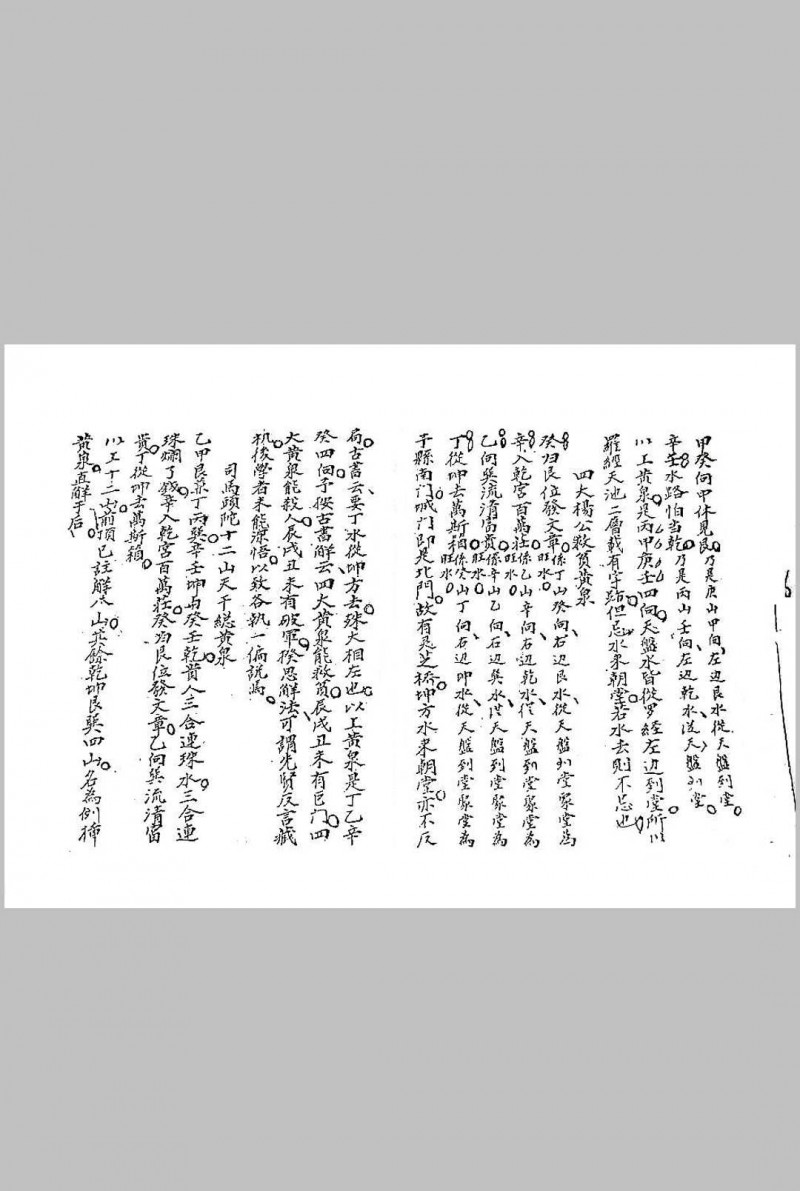 甲癸向甲休見艮乃是庚山甲向左边艮水從天盤到堂
辛壬水路怕当乾乃是丙山壬向左边乾水從天盤到堂
以上黄泉是丙甲庚壬四向天盤水皆從罗經左边到堂所以
羅經天池二層載有字跡但忌水來朝堂若水去則不忌也
四大楊公救貧黄泉
癸归艮位發文章係丁山癸向右边艮水從天盤到堂聚堂為旺水
辛入乾宮百萬莊係乙山辛向右边乾水從天盤到堂聚堂為旺水
乙向巽流清富貴係辛山乙向右边巽水從天盤到堂聚堂為旺水
丁從坤去萬斯箱係癸山丁向右边坤水從天盤到堂聚堂為旺水
子縣南门城门即是北门故有灵芝橋坤方水來朝堂亦不反
局古書云要丁水從坤方去殊大相左也以上黄泉是丁乙辛
癸四向予按古書解云四大黄泉能救貧辰戌丑未有巨门四
大黄泉能殺人辰戌丑未有破軍揆思解法可謂先贤反言藏
机後學者未能深悟以致各執一偏説焉
司馬頭陀十二山天干総黄泉
乙甲艮兼丁丙巽辛壬坤与癸壬乾貴人三合連珠水三合連
珠爛了錢辛入乾宮百萬莊癸归艮位發文章乙向巽流清富
貴丁從坤去萬斯箱
以上十二山前頂已註解八山其餘乾坤艮巽四山名為例挿
黄泉直解于后